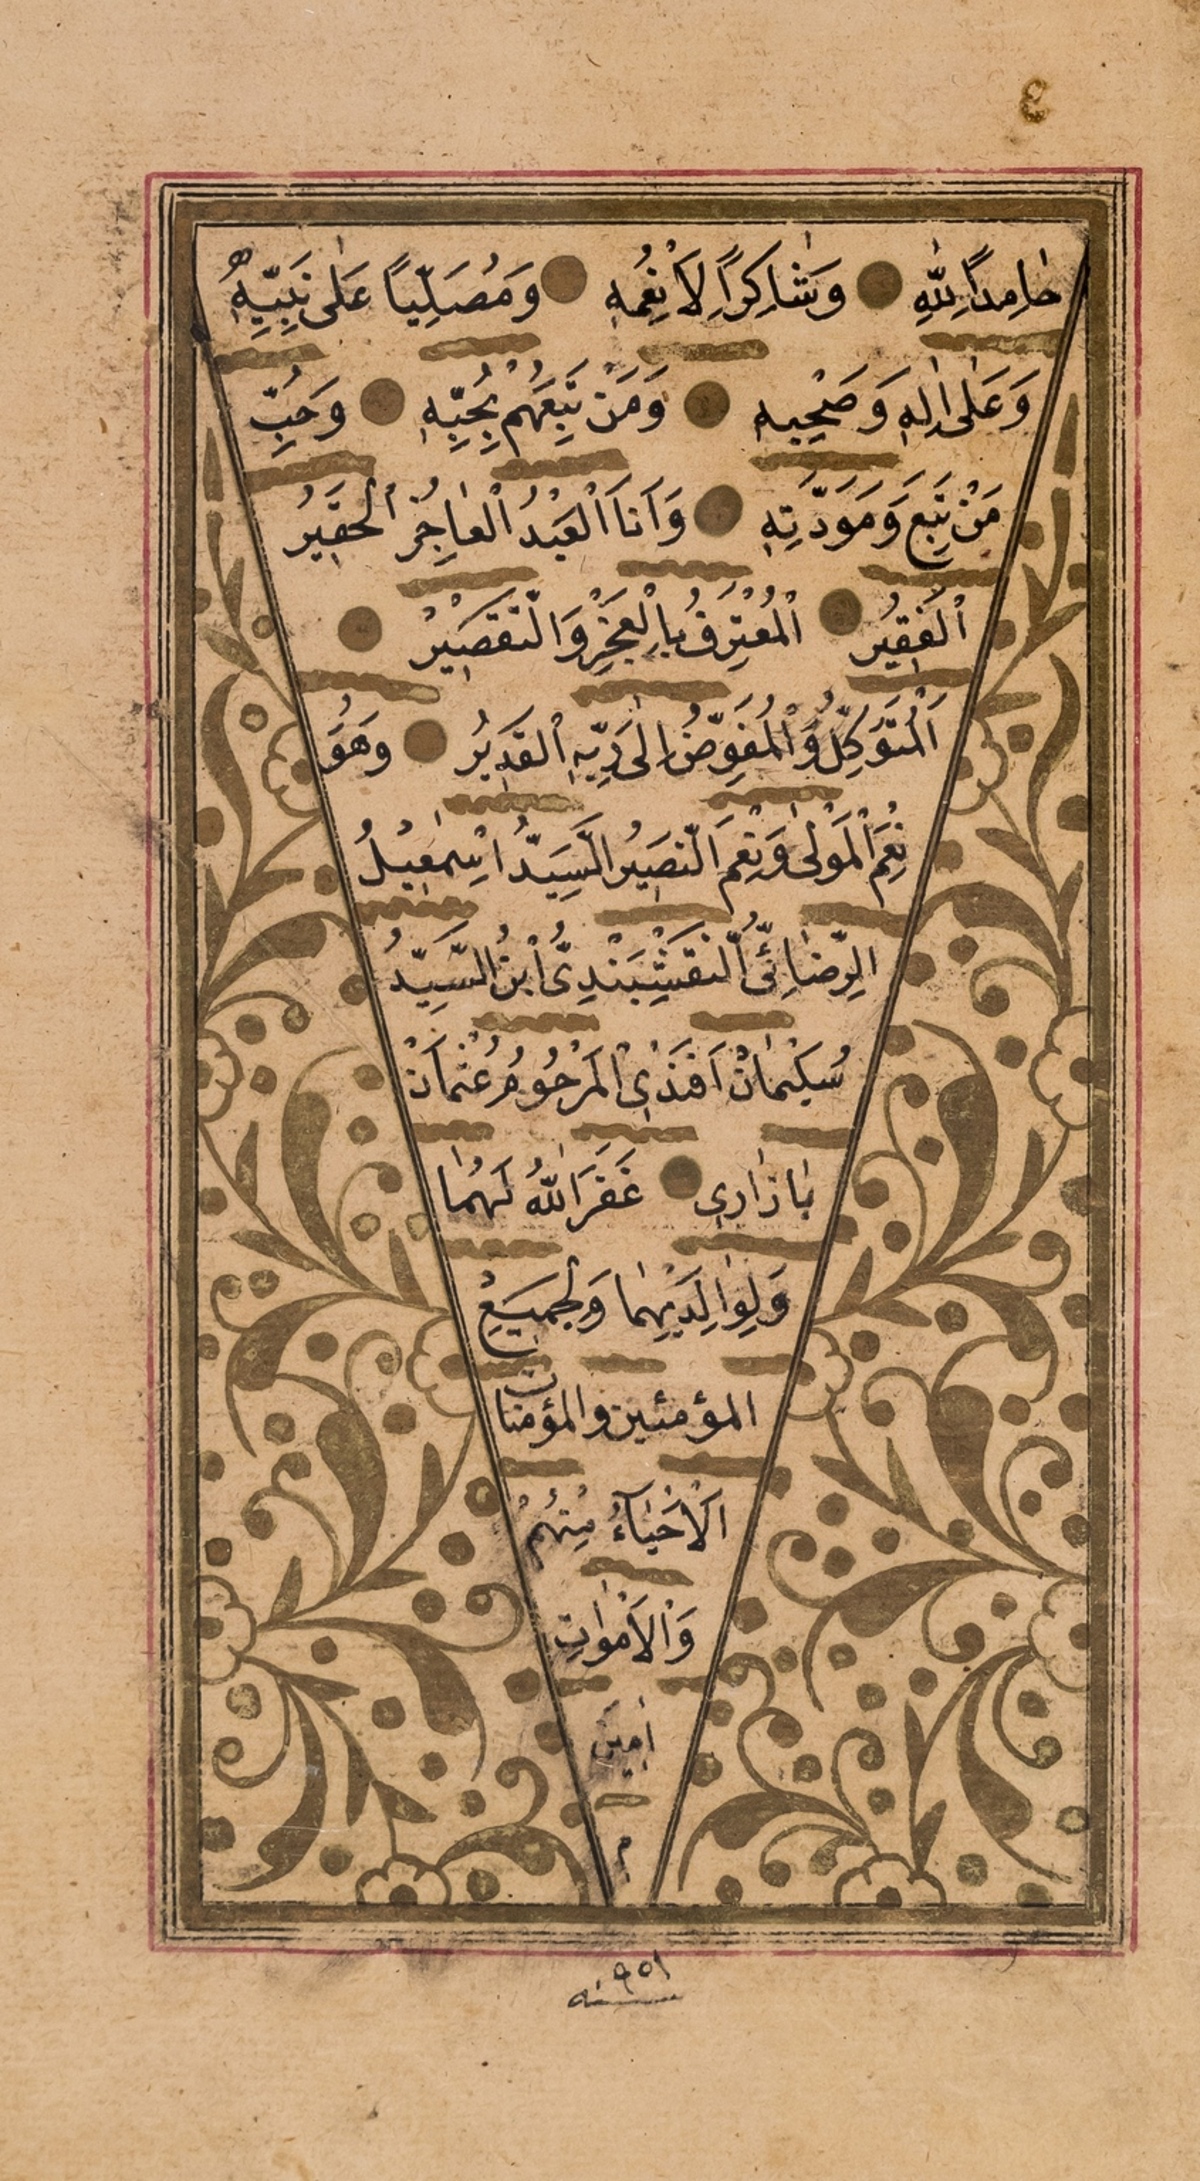 ٤
حامداً لله وشاكراً لانعمه ومصلياً على نبيه
وعلى اله وصحبه ومن تبعهم بحبه وحب
من تبع ومودته وانا العبد العاجز الحقير
الفقير المعترف بالعجز والتقصير
المتوكل والمفوض الى ربه القدير وهو
نعم المولى ونعم النصير السيد اسمعيل
الرضائى النقشبندى ابن السيد
سليمان افندى المرحوم عثمان
بازارى غفر الله لهما
ولوالديهما ولجميع
المؤمنين والمؤمنات
الاحياء منهم
والاموات
امين
م
٩٥١
سنه